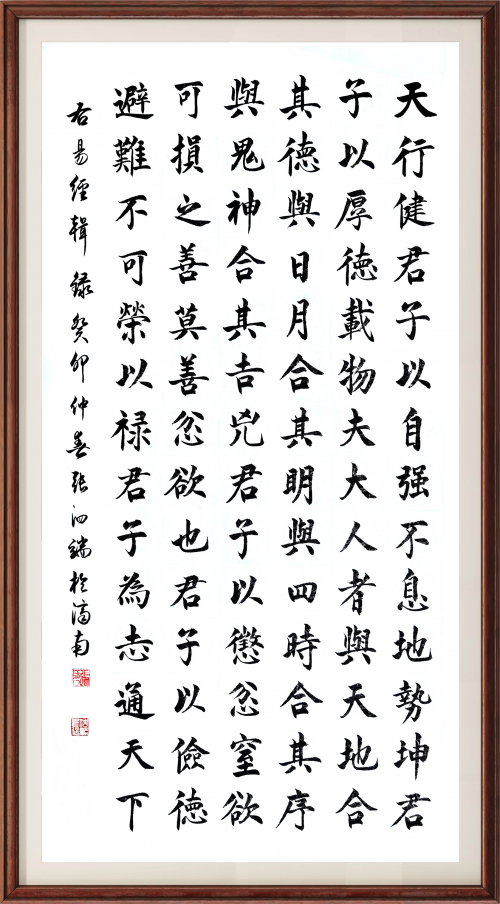 天行健君子以自强不息地勢坤君
子以厚德載物夫大人者與天地合
其德與日月合其明與四時合其序
與鬼神合其吉兇君子以懲忿窒欲
可損之善莫善忿欲也君子以儉德
避難不可榮以禄君子為志通天下
右易經輯録癸卯仲春張泗端於濟南